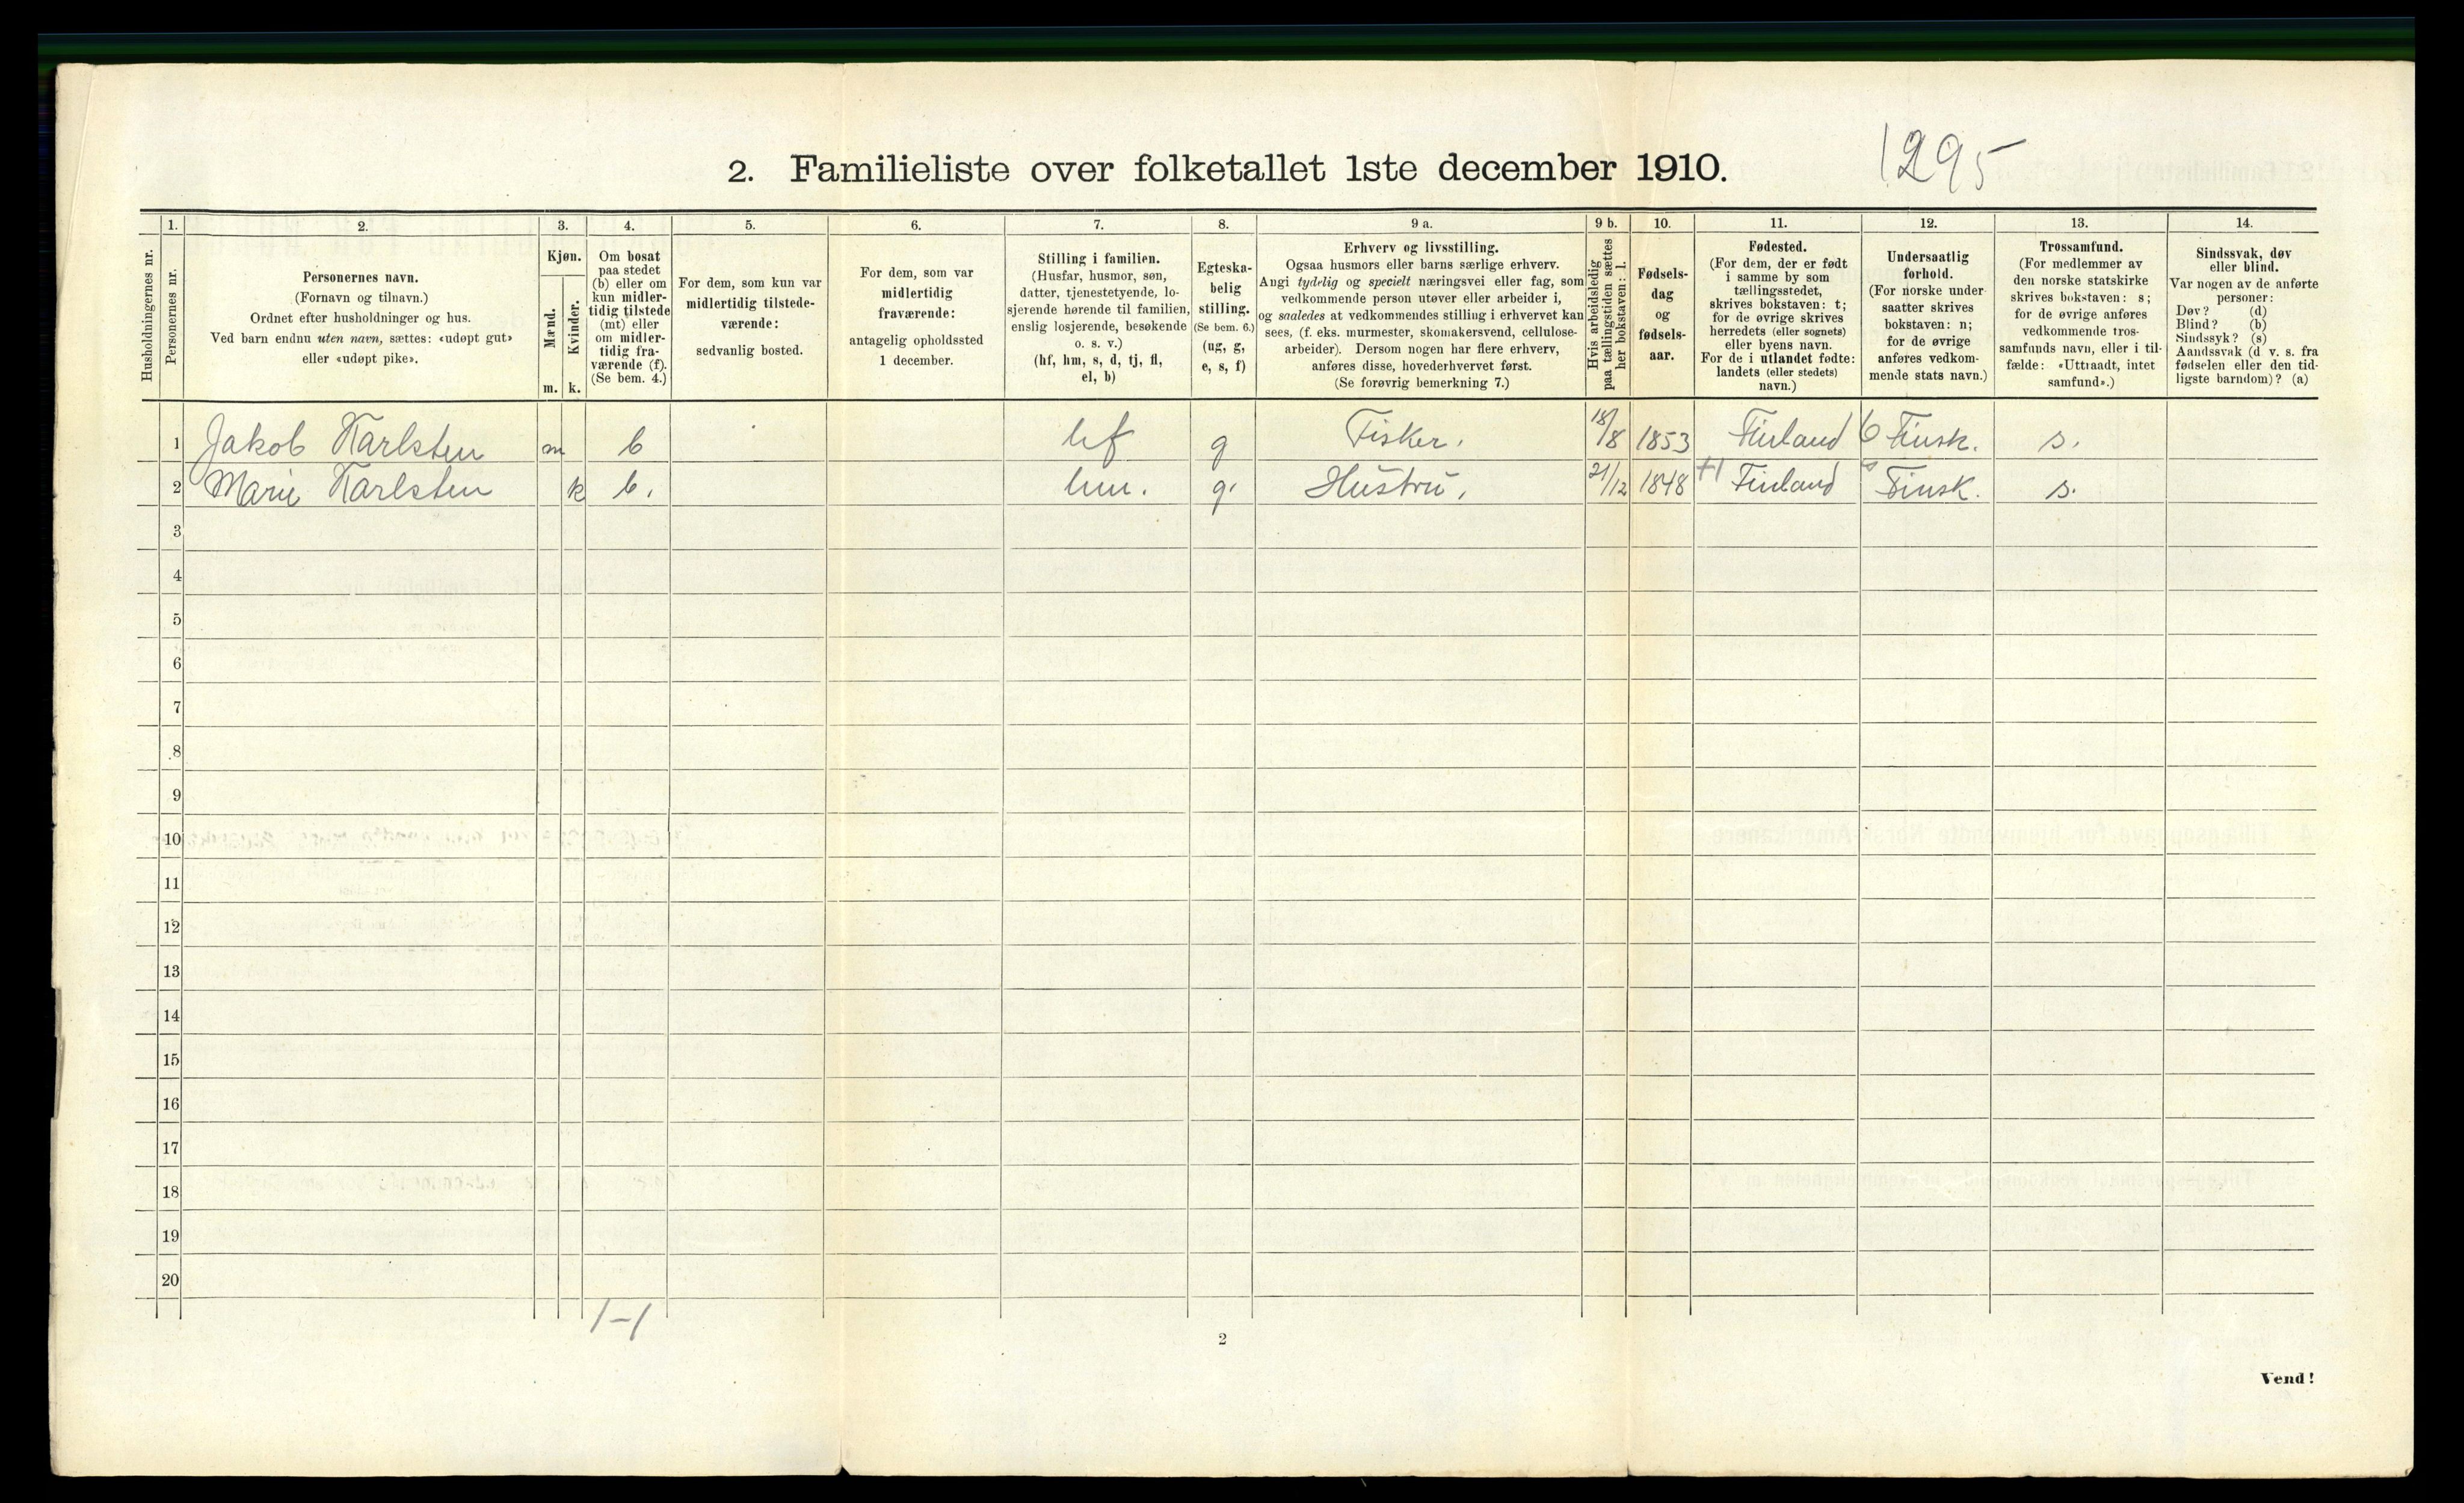 1295
2. Familieliste over folketallet 1ste december 1910.
1. 2. 3. 4. 5. 6. 7. 8. 9 a. 9 b. 10. 11. 12. 13. 14.
Husholdningernes nr.
Personernes nr.
Personernes navn.
(Fornavn og tilnavn.)
Ordnet efter husholdninger og hus.
Ved barn endnu uten navn, sættes: «udøpt gut»
eller «udøpt pike».
Kjøn.
Mænd.
Kvinder.
m. k.
Om bosat
paa stedet
(b) eller om
kun midler-
tidig tilstede
(mt) eller
om midler-
tidig fra-
værende (f).
(Se bem. 4.)
For dem, som kun var
midlertidig tilstede-
værende:
sedvanlig bosted.
For dem, som var
midlertidig
fraværende:
antagelig opholdssted
1 december.
Stilling i familien.
(Husfar, husmor, søn,
datter, tjenestetyende, lo-
sjerende hørende til familien,
enslig losjerende, besøkende
o. s. v.)
(hf, hm, s, d, tj, fl,
el, b)
Egteska-
belig
stilling.
(Se bem. 6.)
(ug, g,
e, s, f)
Erhverv og livsstilling.
Ogsaa husmors eller barns særlige erhverv.
Angi tydelig og specielt næringsvei eller fag, som
vedkommende person utøver eller arbeider i,
og saaledes at vedkommendes stilling i erhvervet kan
sees, (f. eks. murmester, skomakersvend, cellulose-
arbeider). Dersom nogen har flere erhverv,
anføres disse, hovederhvervet først.
(Se forøvrig bemerkning 7.)
Hvis arbeidsledig
paa tællingstiden sættes
her bokstaven: l.
Fødsels-
dag
og
fødsels-
aar.
Fødested.
(For dem, der er født
i samme by som
tællingsstedet,
skrives bokstaven: t;
for de øvrige skrives
herredets (eller sognets)
eller byens navn.
For de i utlandet fødte:
landets (eller stedets)
navn.)
Undersaatlig
forhold.
(For norske under-
saatter skrives
bokstaven: n;
for de øvrige
anføres vedkom-
mende stats navn.)
Trossamfund.
(For medlemmer av
den norske statskirke
skrives bokstaven: s;
for de øvrige anføres
vedkommende tros-
samfunds navn, eller i til-
fælde: «Uttraadt, intet
samfund».)
Sindssvak, døv
eller blind.
Var nogen av de anførte
personer:
Døv? (d)
Blind? (b)
Sindssyk? (s)
Aandssvak (d. v. s. fra
fødselen eller den tid-
ligste barndom)? (a)
1 Jakob Karlsten m b hf g Fisker. 18/8 1853 Finland 6 Finsk. s.
2 Marie Karlsten k b. hm. g. Hustru. 21/12 1848 Finland Finsk. s.
3
4
5
6
7
8
9
10
11
12
13
14
15
16
17
18
19
20
1-1
2
Vend!